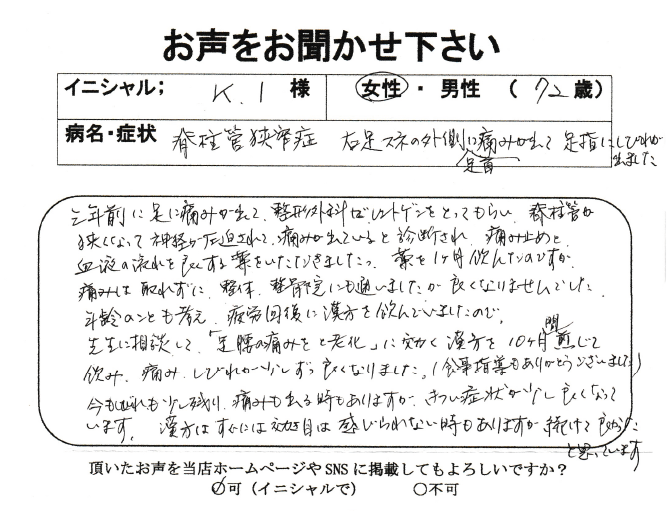 お声をお聞かせ下さい
イニシャル； K.I 様 女性・男性 （72歳）
病名・症状 脊柱管狭窄症 右足スネの外側に痛みが出て 足指にしびれが
足首 出ました
三年前に足に痛みが出て、整形外科でレントゲンをとってもらい、脊柱管が
狭くなって神経が圧迫されて痛みが出ていると診断され、痛み止めと
血液の流れを良くする薬をいただきました。薬を1ヶ月飲んだのですが
痛みは取れずに、整体、整骨院にも通いましたが良くなりませんでした。
年齢のことも考え、疲労回復に漢方を飲んでいましたので、
先生に相談して、「足腰の痛みと老化」に効く漢方を10ヶ月間煎じて
飲み、痛み、しびれが少しずつ良くなりました。（食事指導もありがとうございました）
今もしびれも少し残り、痛みも出る時もありますが、きつい症状が少し良くなって
います。漢方はすぐには効き目は感じられない時もありますが続けて良かった
と思っています
頂いたお声を当店ホームページやSNSに掲載してもよろしいですか？
〇可（イニシャルで） 〇不可